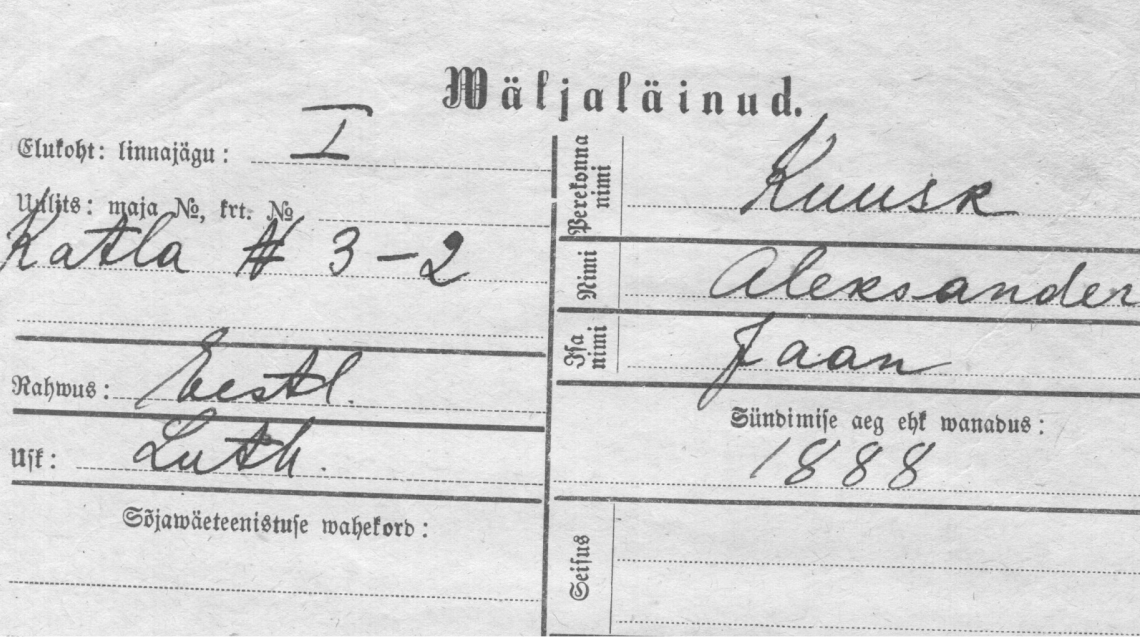 Wäljaläinud.
Elukoht: linnajägu: I
Uulits: maja №, krt. №
Katla # 3-2
Rahwus: Eestl.
Usk: Luth.
Sõjawäeteenistuse wahekord:
Perekonna nimi Kuusk
Nimi Aleksander
Isa nimi Jaan
Sündimise aeg ehk wanadus:
1888
Seisus